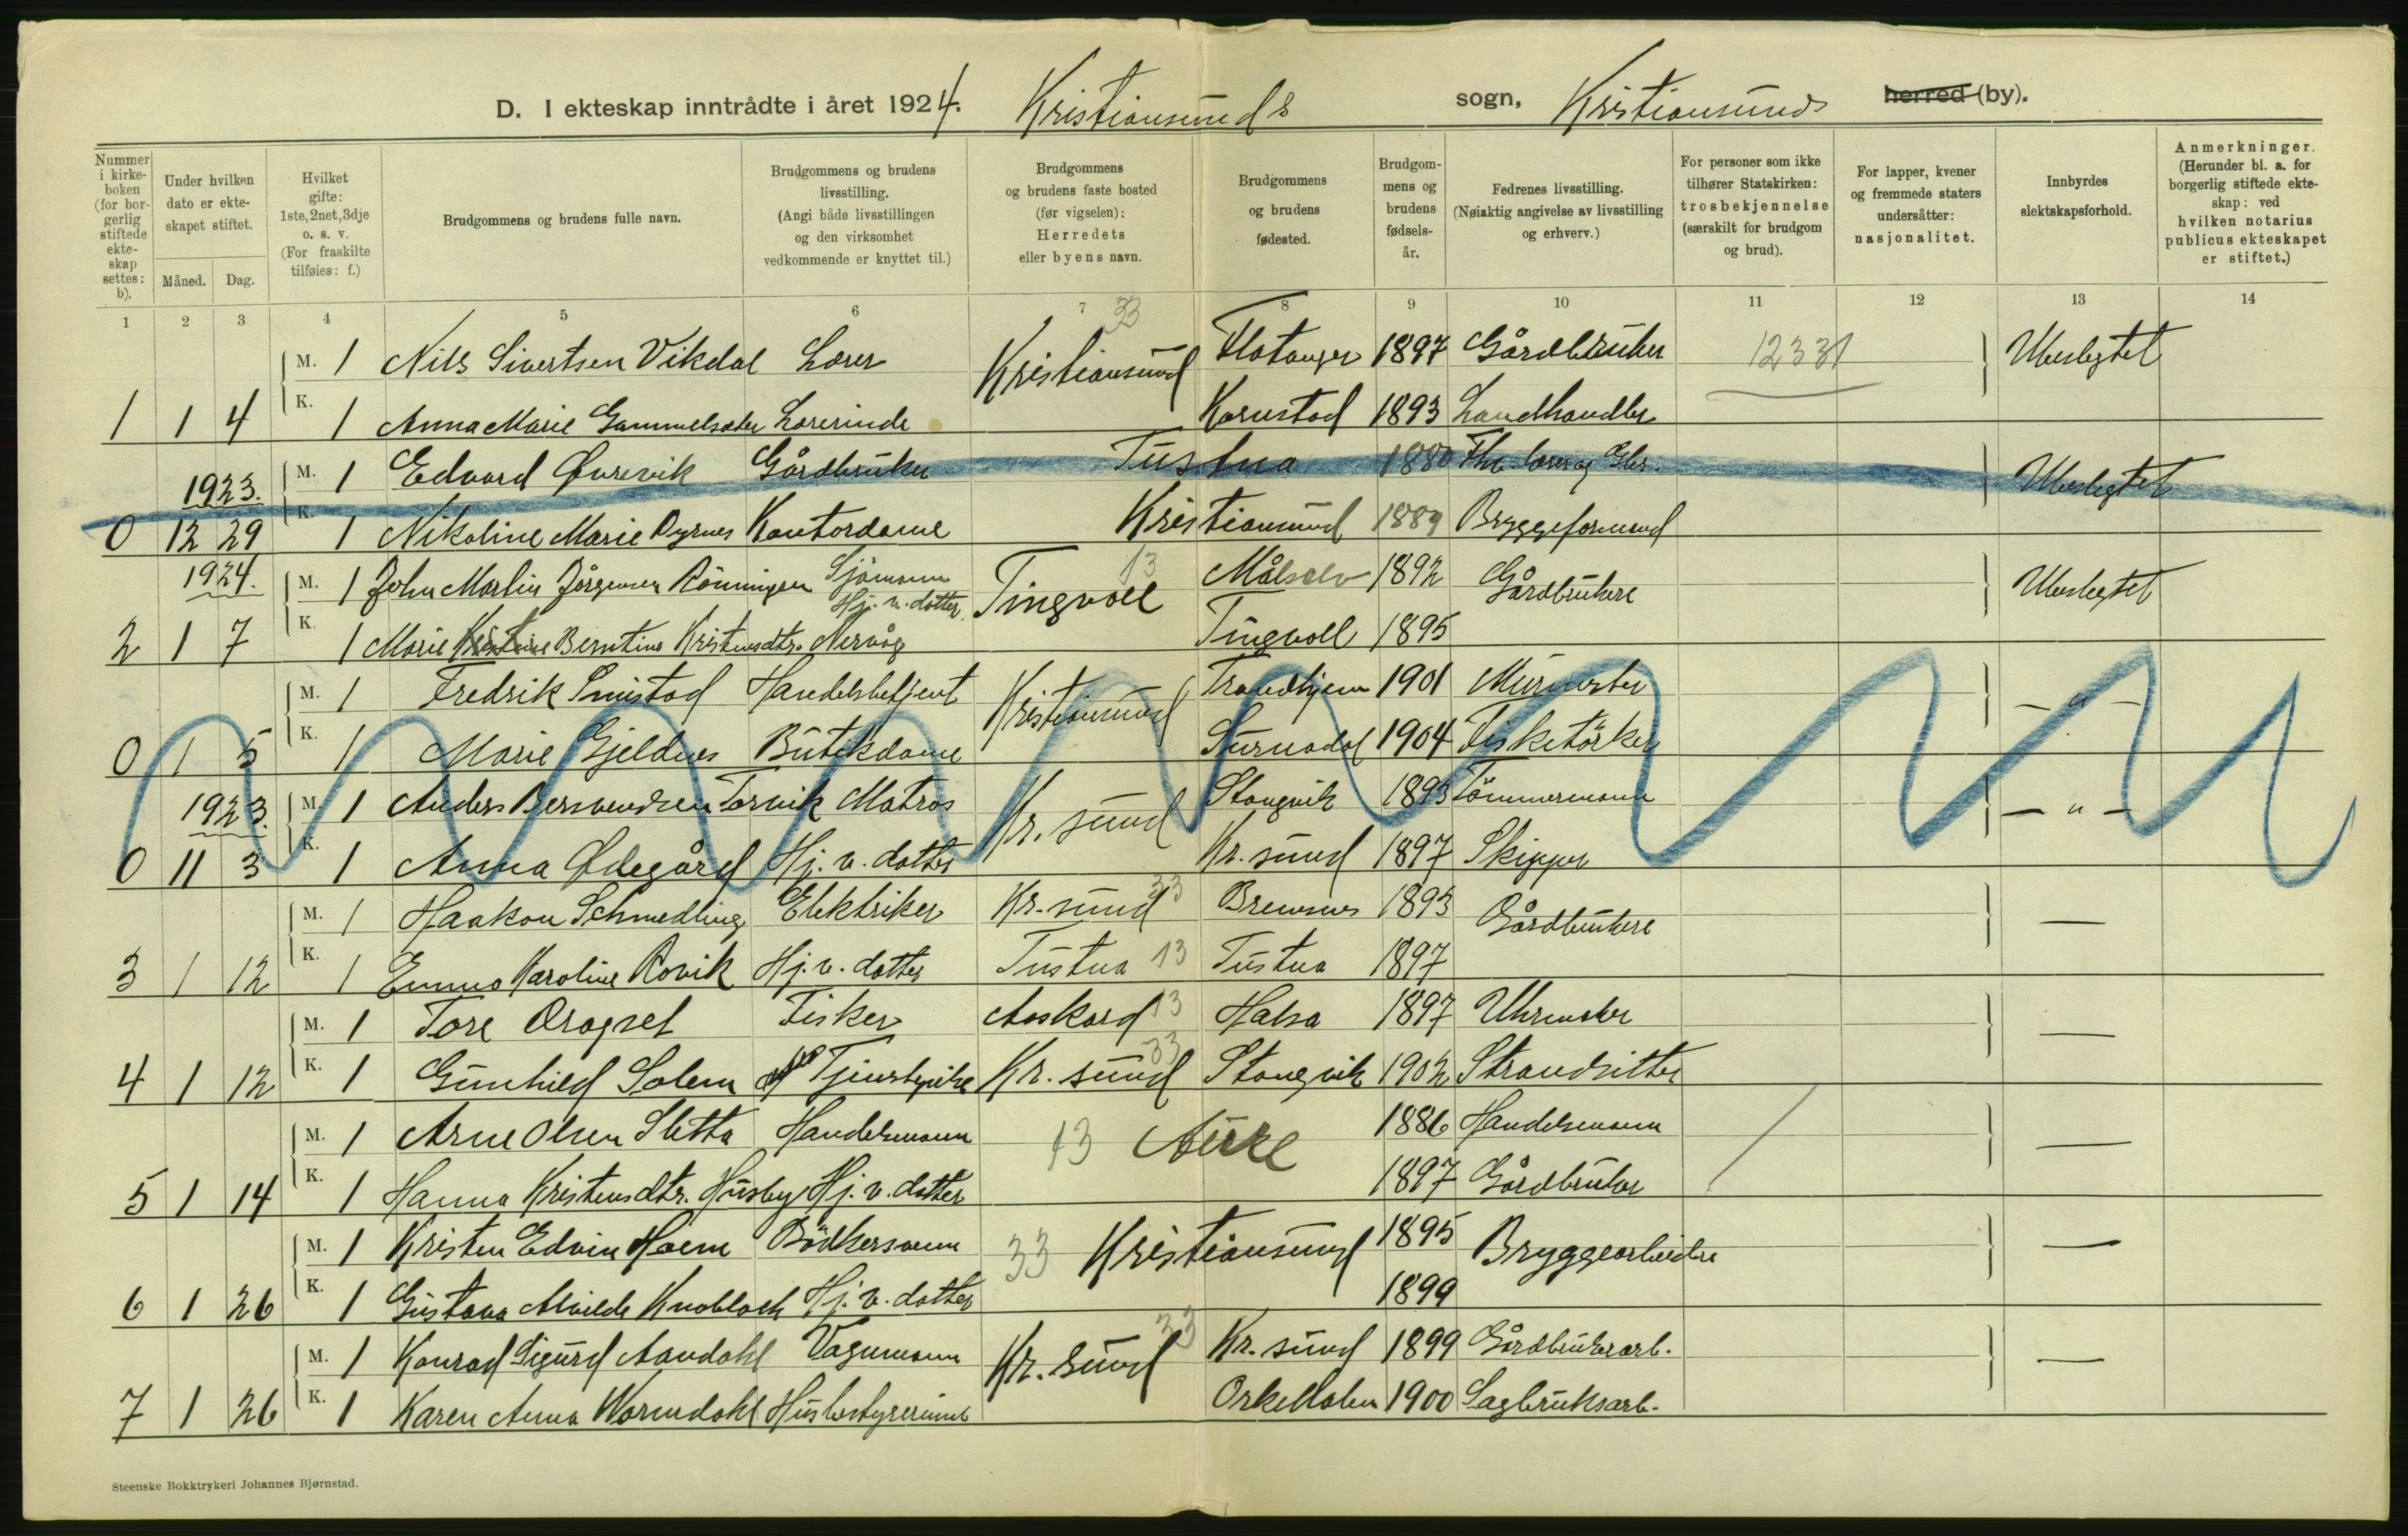 D. I ekteskap inntrådte i året 1924. Kristiansunds sogn, Kristiansunds herred (by).
Nummer i kirkeboken (for borgerlig stiftede ekteskap settes: b).
Under hvilken dato er ekteskapet stiftet.
Måned. Dag.
Hvilket gifte: 1ste, 2net, 3dje o. s. v. (For fraskilte tilføies: f.)
Brudgommens og brudens fulle navn.
Brudgommens og brudens livsstilling. (Angi både livsstillingen og den virksomhet vedkommende er knyttet til.)
Brudgommens og brudens faste bosted (før vigselen): Herredets eller byens navn.
Brudgommens og brudens fødested.
Brudgommens og brudens fødselsår.
Fedrenes livsstilling. (Nøiaktig angivelse av livsstilling og erhverv.)
For personer som ikke tilhører Statskirken: trosbekjennelse (særskilt for brudgom og brud).
For lapper, kvener og fremmede staters undersåtter: nasjonalitet.
Innbyrdes slektskapsforhold.
Anmerkninger. (Herunder bl. a. for borgerlig stiftede ekteskap: ved hvilken notarius publicus ekteskapet er stiftet.)
1 2 3 4 5 6 7 8 9 10 11 12 13 14
33
M. 1 Nils Sivertsen Vikdal Lærer Kristiansund Flatanger 1897 Gårdbruker 12331 Ubeslegtet
1 1 4 K. 1 Anna Marie Gammelsæter Lærerinde Kornstad 1893 Landhandler
1923. M. 1 Edvard Qvrevik Gårdbruker Tustna 1880 Fhv. lærer og Gbr. Ubeslegtet
0 12 29 K. 1 Nikoline Marie Dyrnes Kontordame Kristiansund 1889 Bryggeformand
1924. M. 1 John Martin Jörgensen Rönningen Sjömann Tingvoll 13 Målselv 1892 Gårdbrukere Ubeslegtet
2 1 7 K. 1 Marie Kristine Berntine Kristensdtr. Nervåg Hj. v. datter Tingvoll 1895
M. 1 Fredrik Smistad Handelsbetjent Kristiansund Trondhjem 1901 Murmester - " -
0 1 5 K. 1 Marie Gjeldnes Butikdame Surnadal 1904 Fisketörker
1923. M. 1 Anders Bersvendsen Torvik Matros Kr. sund Stangvik 1893 Tömmermann - " -
0 11 3 K. 1 Anna Ødegård Hj. v. datter Kr. sund 1897 Skipper
M. 1 Haakon Schmedling Elektriker Kr. sund 33 Bremsnes 1893 Gårdbrukere —
3 1 12 K. 1 Emma Karoline Rovik Hj. v. datter Tustna 13 Tustna 1897
M. 1 Tore Dragset Fisker Aaskard 13 Halsa 1897 Uhrmaker —
4 1 12 K. 1 Gunhild Solem Tjenestepike Kr. sund 33 Stangvik 1902 Strandsitter
M. 1 Arne Olsen Sletta Handelsmann 13 Aure 1886 Handelsmann —
5 1 14 K. 1 Hanna Kristensdtr. Husby Hj. v. datter 1897 Gårdbruker
M. 1 Kristen Edvin Hoem Bödkersvenn 33 Kristiansund 1895 Bryggearbeidere —
6 1 26 K. 1 Gustava Alvilde Knobloch Hj. v. datter 1899
M. 1 Konrad Sigurd Aandahl Vognmann Kr. sund 33 Kr. sund 1899 Gårdbrukerarb. —
7 1 26 K. 1 Karen Anna Wormdahl Husbestyrerinne Orkedalen 1900 Sagbruksarb.
Steenske Bokktrykeri Johannes Bjørnstad.